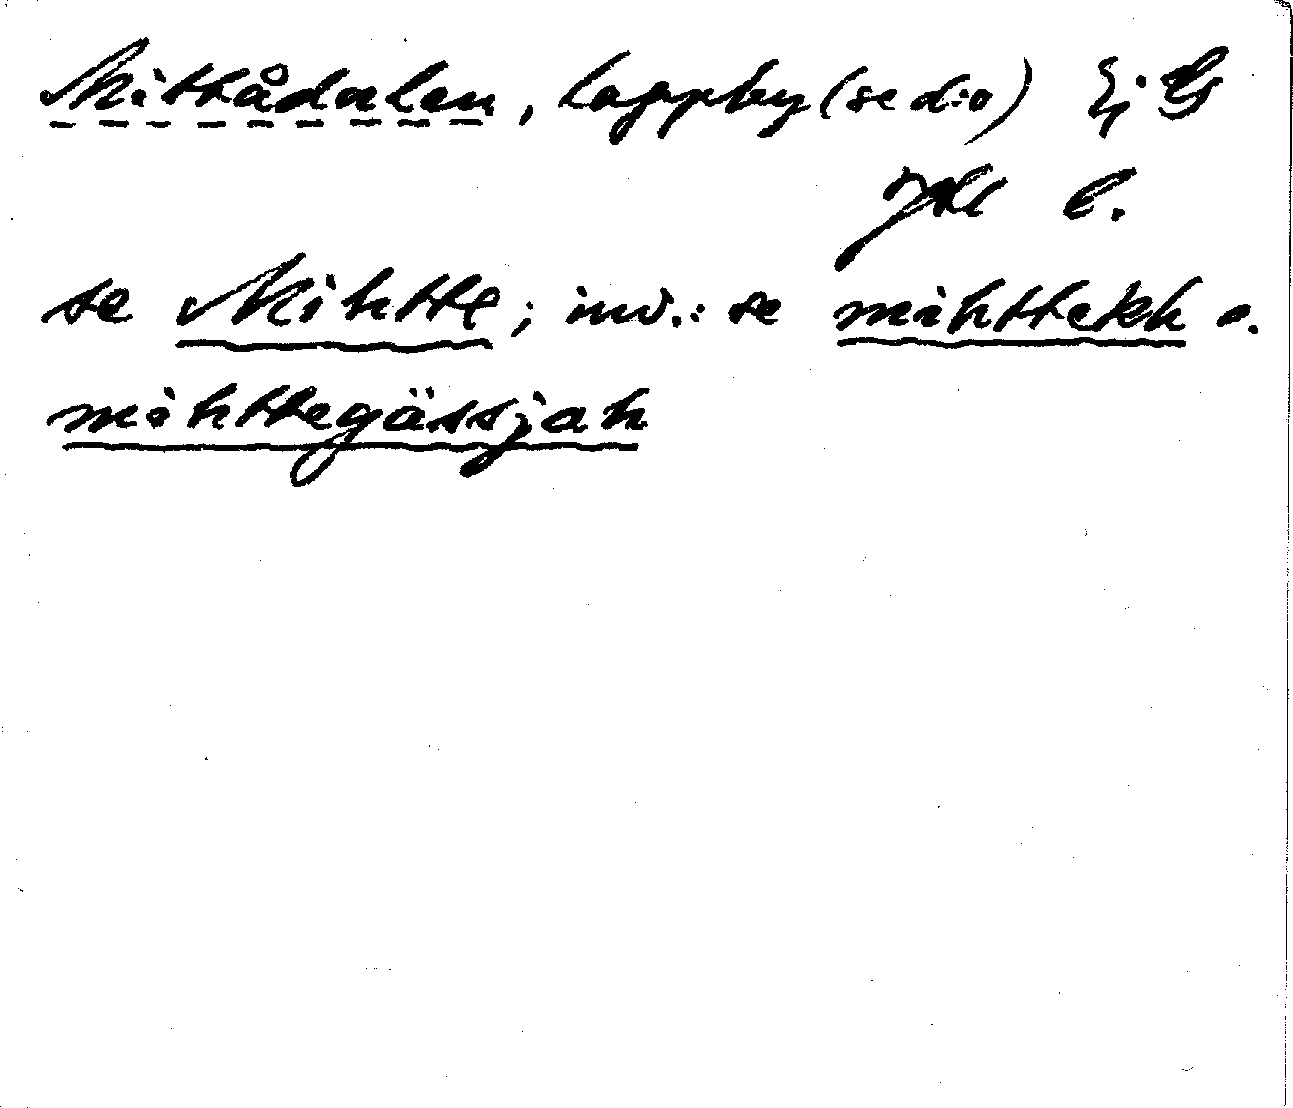 Mittådalen, lappby (se d:o) Ej: G
Jkl l.
se Mihtte; inv.: se mihttekh o.
mihttegässjah